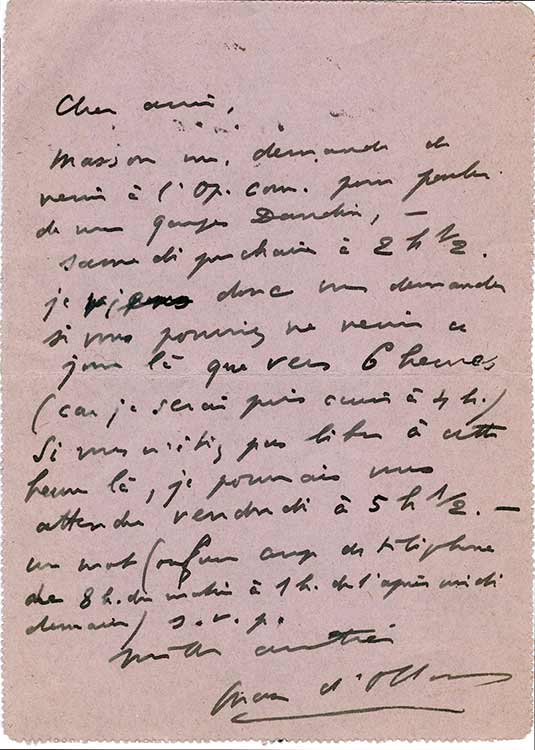 Cher ami,
Masson me demande de
venir à l'Op. Com. pour parler
de mon Georges Dandin, —
samedi prochain à 2 h 1/2.
je viens donc vous demander
si vous pourriez ne venir ce
jour là que vers 6 heures
(car je serai pris aussi à 4 h.)
Si vous n'étiez pas libre à cette
heure là, je pourrais vous
attendre vendredi à 5 h 1/2. —
un mot (ou un coup de téléphone
de 8 h. du matin à 1 h. de l'après midi
demain) s. v. p.
mille amitiés
Max d'Ollone